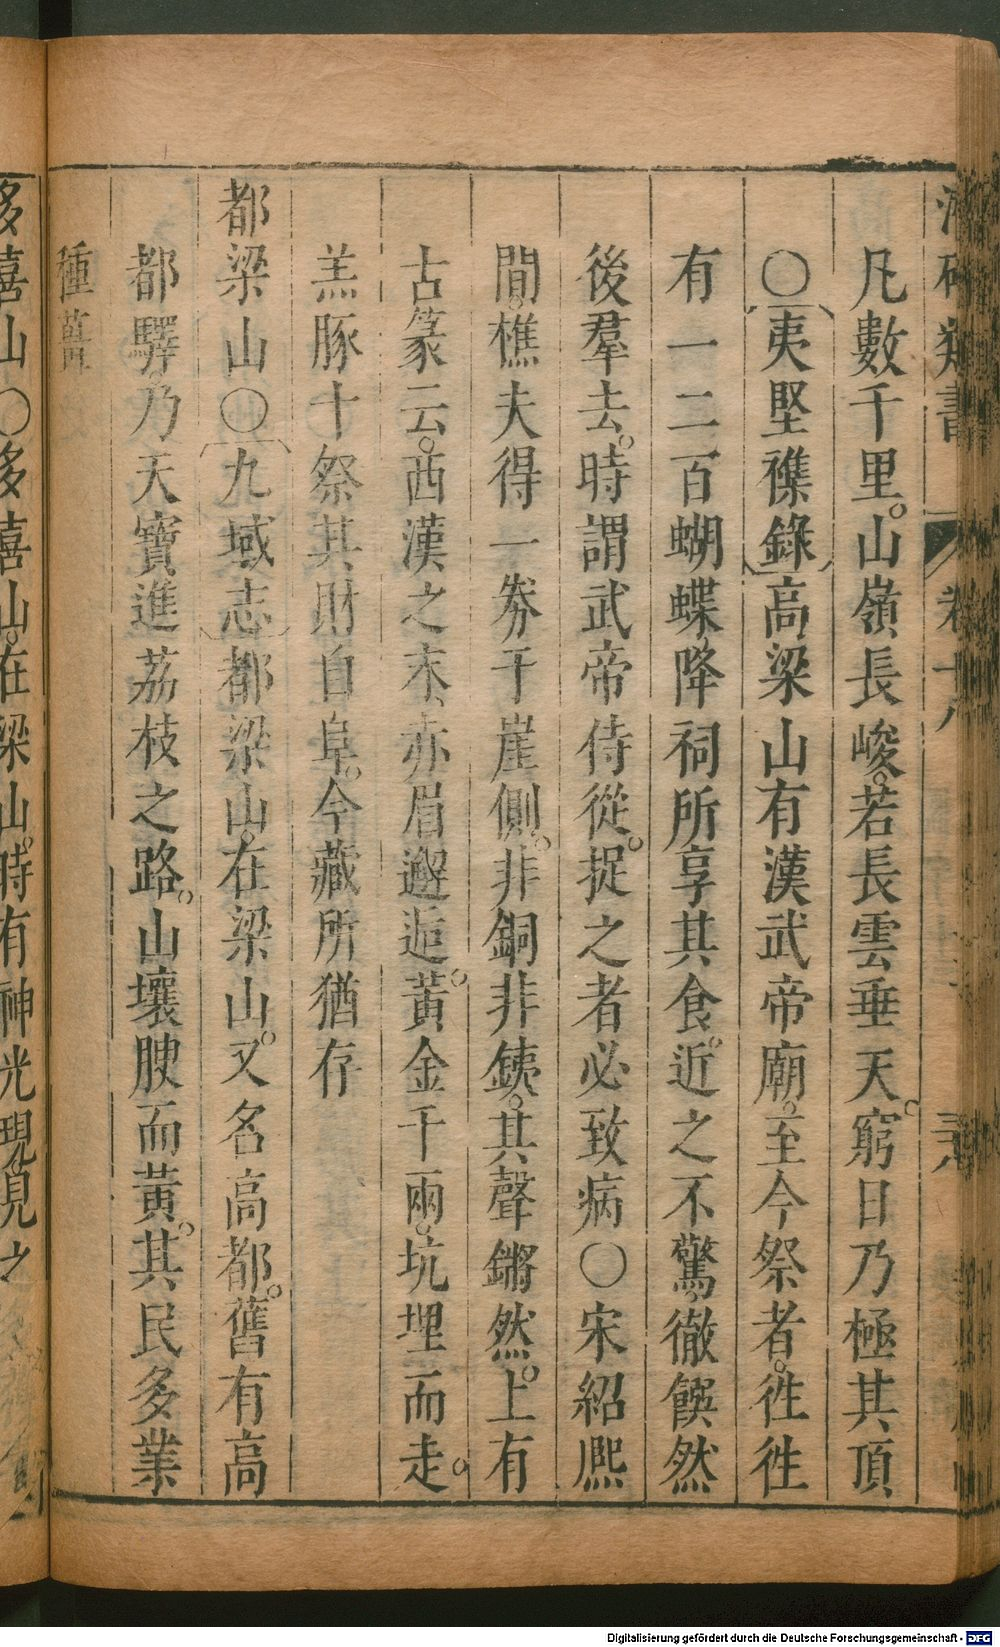 凡數千里。山嶺長峻。若長雲垂天。窮日乃極其頂
〇夷堅襍錄高梁山有漢武帝廟。至今祭者。徃徃
有一二百蝴蝶、降祠所享其食。近之不驚、徹饌然
後羣去。時謂武帝侍從。捉之者必致病〇宋紹熈
間。樵夫得一劵于崖側。非銅非銕。其聲鏘然。上有
古篆云。西漢之末、赤眉邂逅。黃金千兩。坑埋而走。
羔豚十祭其財自阜。今藏所猶存
都梁山〇九域志都梁山。在梁山。又名高都。舊有高
都驛乃天寶進荔枝之路。山壤腴而黃。其民多業
種薑
多喜山〇多喜山。在梁山。時有神光現見之
卷十八
Digitalisierung gefördert durch die Deutsche Forschungsgemeinschaft - DFG